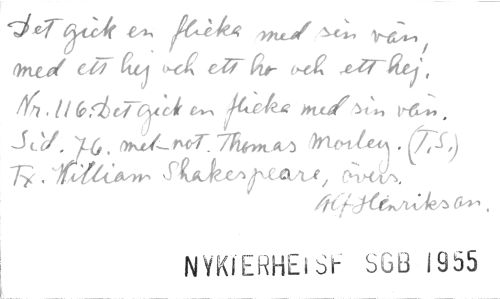 Det gick en flicka med sin vän,
med ett hej och ett ho och ett hej.
Nr. 116. Det gick en flicka med sin vän.
Sid. 76. mel-not. Thomas Morley. (T.S.)
Tx. William Shakespeare, övers.
Alf Henrikson.
NYKTERHETSF SGB 1955